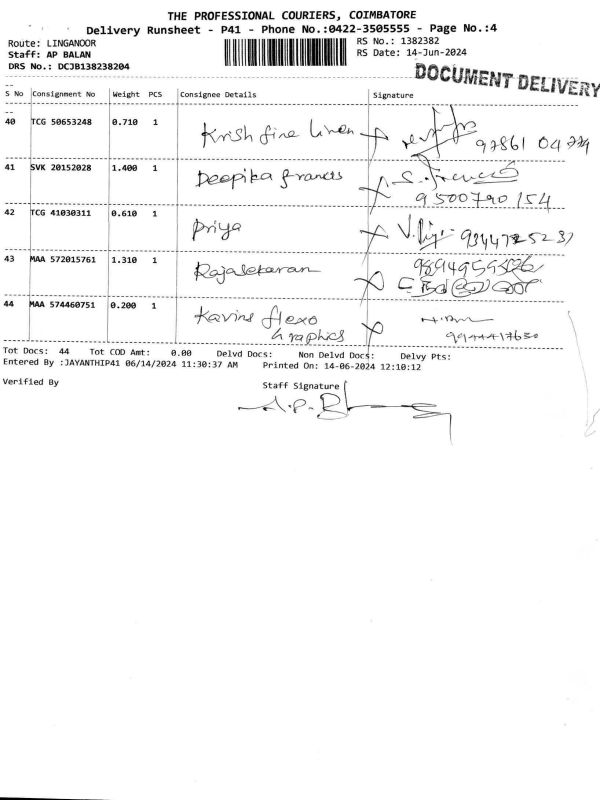 THE PROFESSIONAL COURIERS, COIMBATORE
Delivery Runsheet - P41 - Phone No.:0422-3505555 - Page No.:4
Route: LINGANOOR RS No.: 1382382
Staff: AP BALAN RS Date: 14-Jun-2024
DRS No.: DCJB138238204
DOCUMENT DELIVERY
S No Consignment No Weight PCS Consignee Details Signature
40 TCG 50653248 0.710 1 Krish fine linen
97861 04779
41 SVK 20152028 1.400 1 Deepika francis S. Francis
9500790154
42 TCG 41030311 0.610 1 Priya
43 MAA 572015761 1.310 1 Rajasekaran
44 MAA 574460751 0.200 1 Kavins flexo
graphics 9944417630
Tot Docs: 44 Tot COD Amt: 0.00 Delvd Docs: Non Delvd Docs: Delvy Pts:
Entered By :JAYANTHIP41 06/14/2024 11:30:37 AM Printed On: 14-06-2024 12:10:12
Verified By Staff Signature